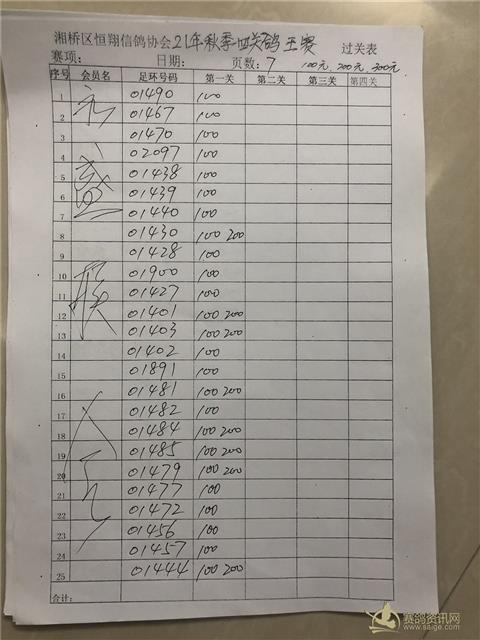 湘桥区恒翔信鸽协会21年秋季四关鸽王赛 过关表
赛项: 日期: 页数: 7 100元, 200元, 300元
序号 会员名 足环号码 第一关 第二关 第三关 第四关
1 01490 100
2 01467 100
3 01470 100
4 02097 100
5 01438 100
6 01439 100
7 01440 100
8 01430 100 200
9 01428 100
10 01900 100
11 01427 100
12 01401 100 200
13 01403 100 200
14 01402 100
15 01891 100
16 01481 100 200
17 01482 100
18 01484 100 200
19 01485 100 200
20 01479 100 200
21 01477 100
22 01472 100
23 01456 100
24 01457 100
25 01444 100 200
永盛联合
合计:
赛鸽资讯网
www.saige.com